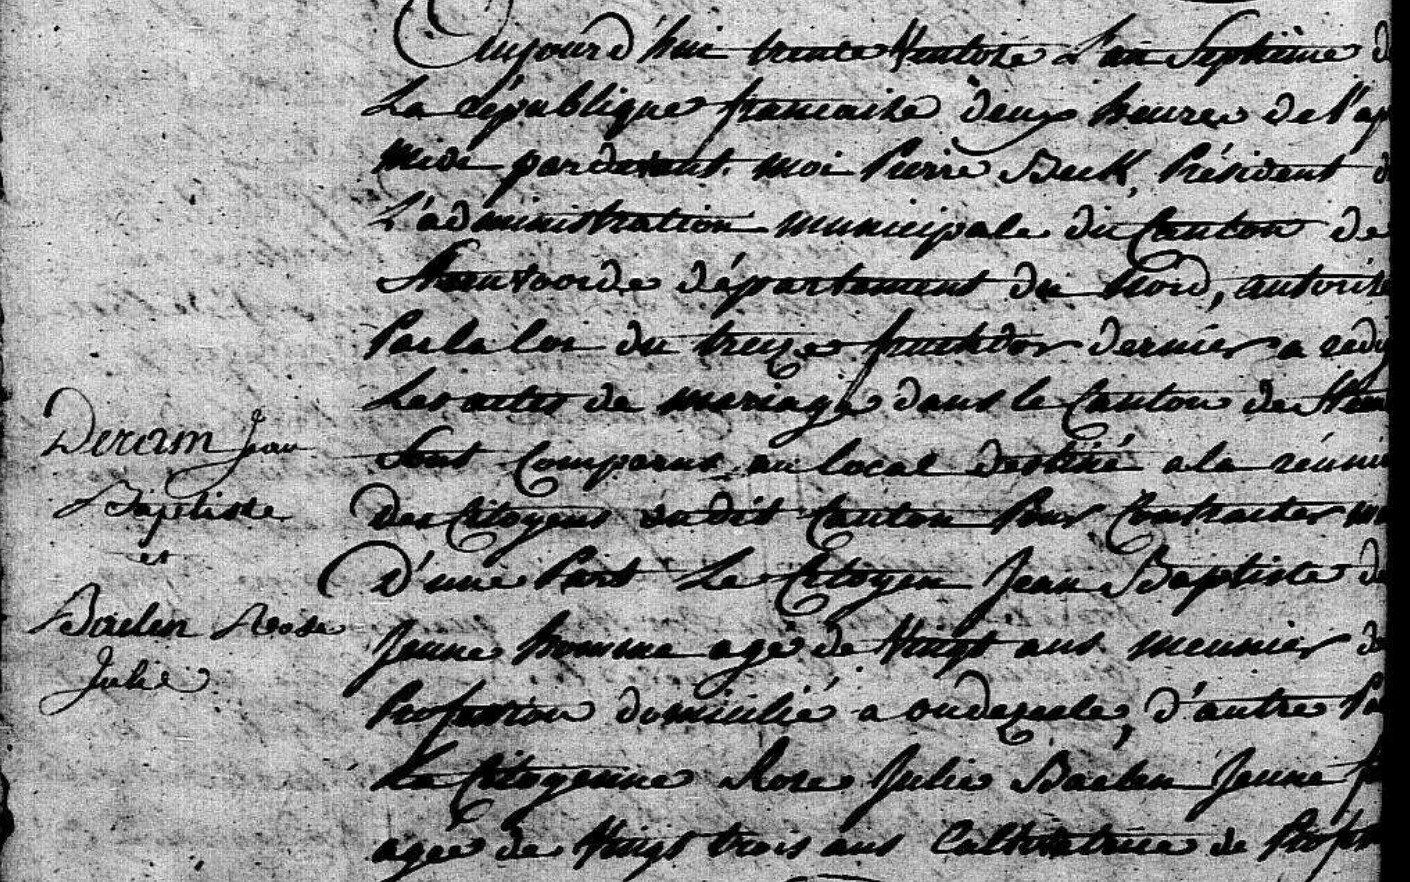 Aujourd'hui trente Ventose L'an Septième d
La république francaise deux heures de l'ap
Midi pardevant moi Pierre Beck, Président d
L'administration municipale du Canton de
Steenvoorde département du Nord, autorisé
Par la loi du treize fructidor dernier a rédi
Les actes de mariage dans le Canton de Steen
Sont Comparus au local destiné a la réuni
Des Citoyens dudit Canton Pour Contracter ma
D'une Part Le Citoyen Jean Baptiste de
Jeune homme agé de Vingt ans meunier de
Profession domicilié a oudezeele, d'autre Pa
La Citoyenne Rose Julie Baelen Jeune fi
agée de Vingt trois ans Cultivatrice de Profes
Jean
Baptiste
et
Baelen Rose
Julie